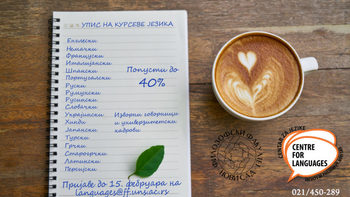 УПИС НА КУРСЕВЕ ЈЕЗИКА
Енглески
Немачки
Француски
Италијански
Шпански
Португалски
Руски
Румунски
Русински
Словачки
Украјински
Хинди
Јапански
Турски
Грчки
Старогрчки
Латински
Персијски
Попусти до
40%
Изворни говорници
и универзитетски
кадрови
Пријаве до 15. фебруара на
languages@ff.uns.ac.rs
ФИЛОЗОФСКИ ФАКУЛТЕТ
НОВИ САД
ЦЕНТАР ЗА ЈЕЗИКЕ
CENTRE
FOR
LANGUAGES
021/450-289